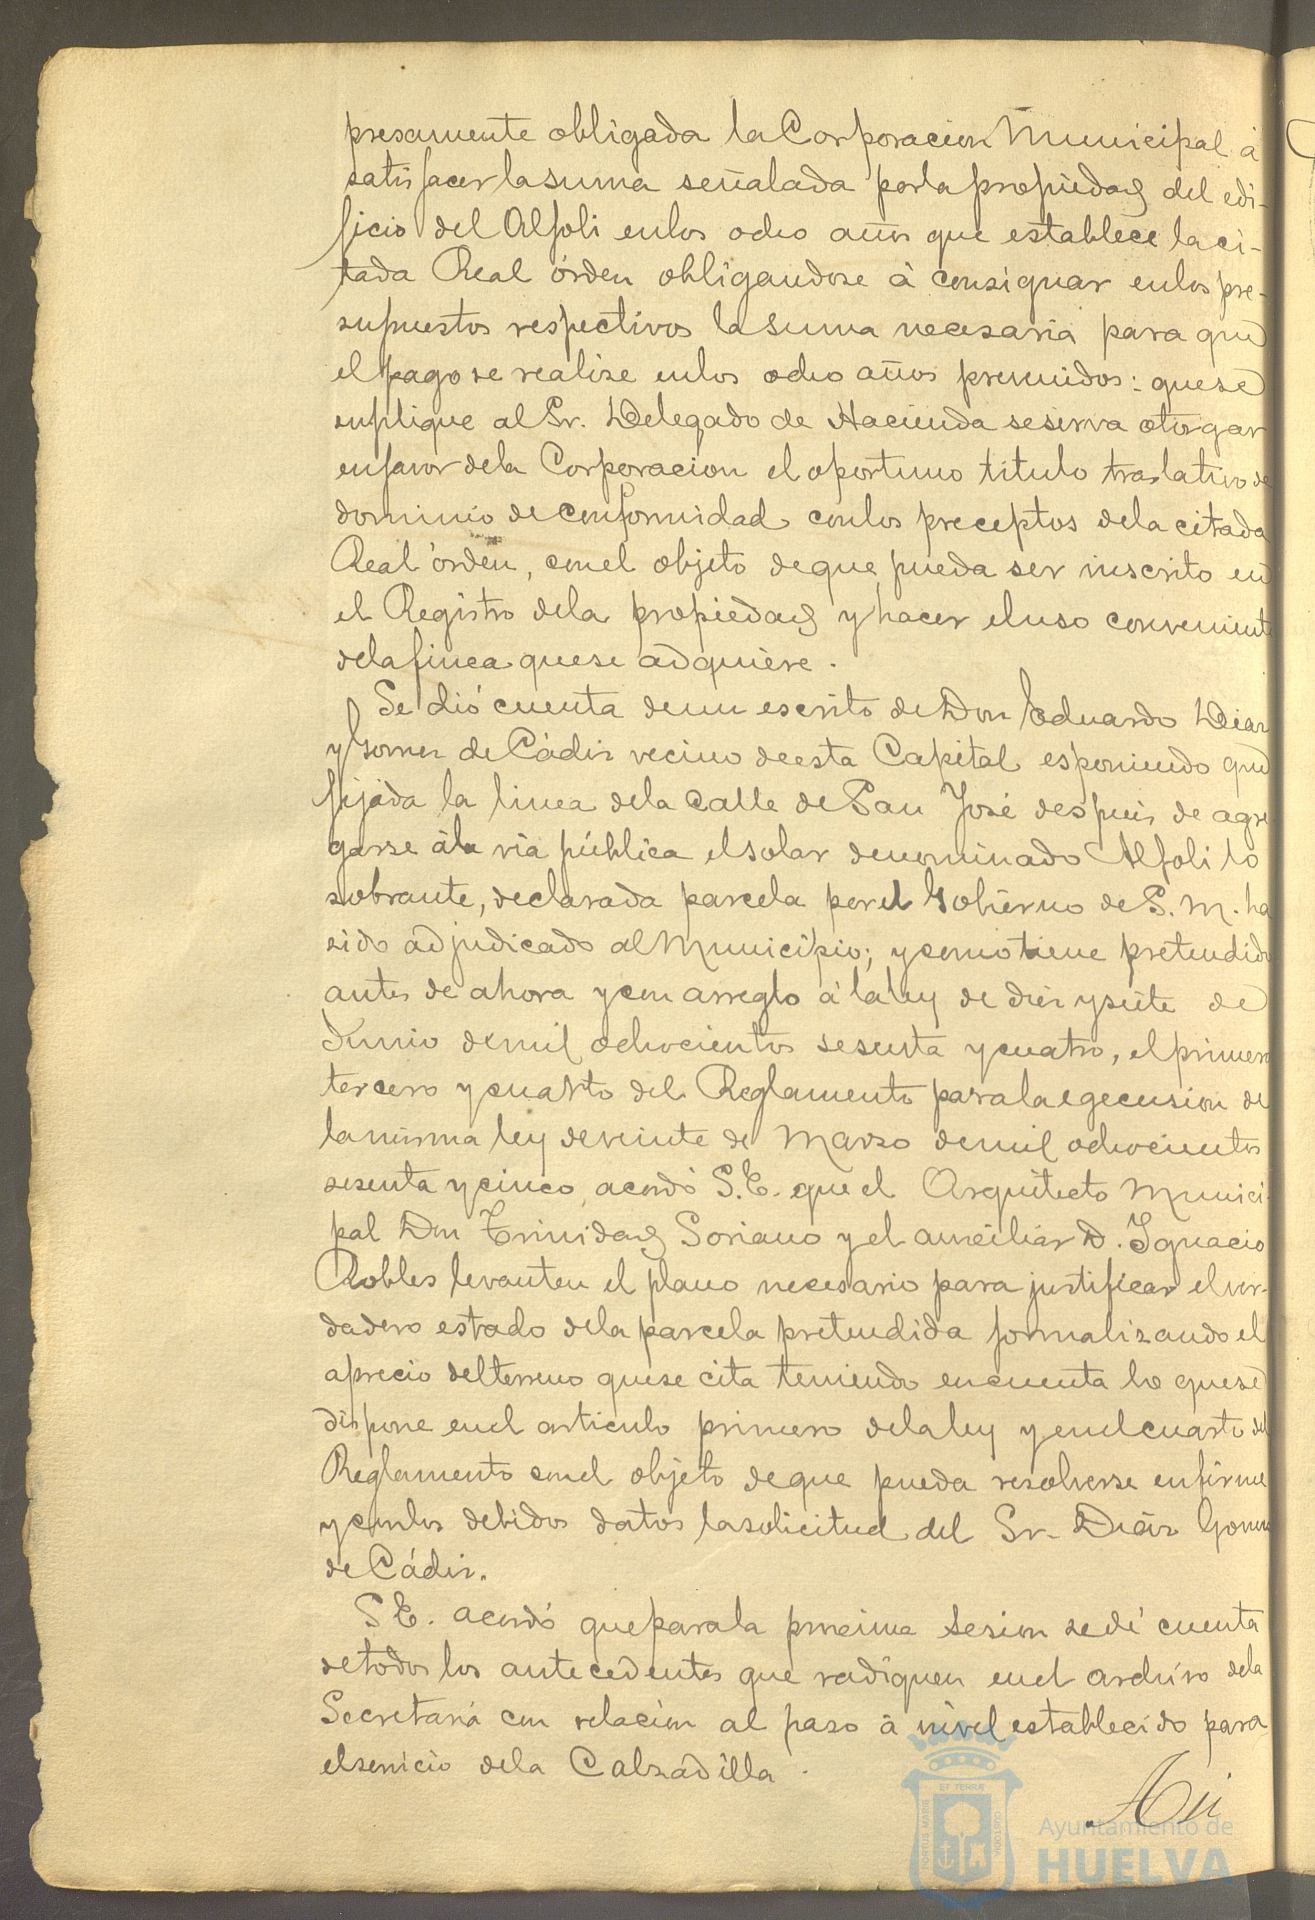 presamente obligada la Corporacion Municipal á
satisfacer la suma señalada por la propiedad del edi-
ficio del Alfoli en los ocho años que establece la ci-
tada Real órden obligandose á consignar en los pre-
supuestos respectivos la suma necesaria para que
el pago se realize en los ocho años premidos: que se
suplique al Sr. Delegado de Hacienda se sirva otorgar
en favor de la Corporacion el oportuno titulo traslativo de
dominio de conformidad con los preceptos de la citada
Real órden, con el objeto de que pueda ser inscrito en
el Registro de la propiedad y hacer el uso conveniente
de la finca que se adquiere.
Se dió cuenta de un escrito de Don Eduardo Diaz
y Gomez de Cádiz vecino de esta Capital esponiendo que
fijada la linea de la Calle de San José despues de agre
garse á la via pública el solar denominado Alfoli lo
sobrante, declarada parcela por el Gobierno de S. M. ha
sido adjudicado al Municipio; y como tiene pretendido
antes de ahora y con arreglo á la ley de diez y siete de
Junio de mil ochocientos sesenta y cuatro, el primero
tercero y cuarto del Reglamento para la egecusion de
la misma ley de veinte de Marzo de mil ochocientos
sesenta y cinco, acordó S.E. que el Arquitecto Munici-
pal Don Trinidad Soriano y el auxiliar D. Ignacio
Robles levanten el plano necesario para justificar el ver-
dadero estado de la parcela pretendida formalizando el
aprecio del terreno que se cita teniendo en cuenta lo que se
dispone en el articulo primero de la ley y en el cuarto del
Reglamento con el objeto de que pueda resolverse en firme
y con los debidos datos la solicitud del Sr. Diaz Gomez
de Cádiz.
S E. acordó que para la procsima sesion se dé cuenta
de todos los antecedentes que radiquen en el archivo de la
Secretaria con relacion al paso á nivel establecido para
el servicio de la Calzadilla.
Ayuntamiento de
HUELVA